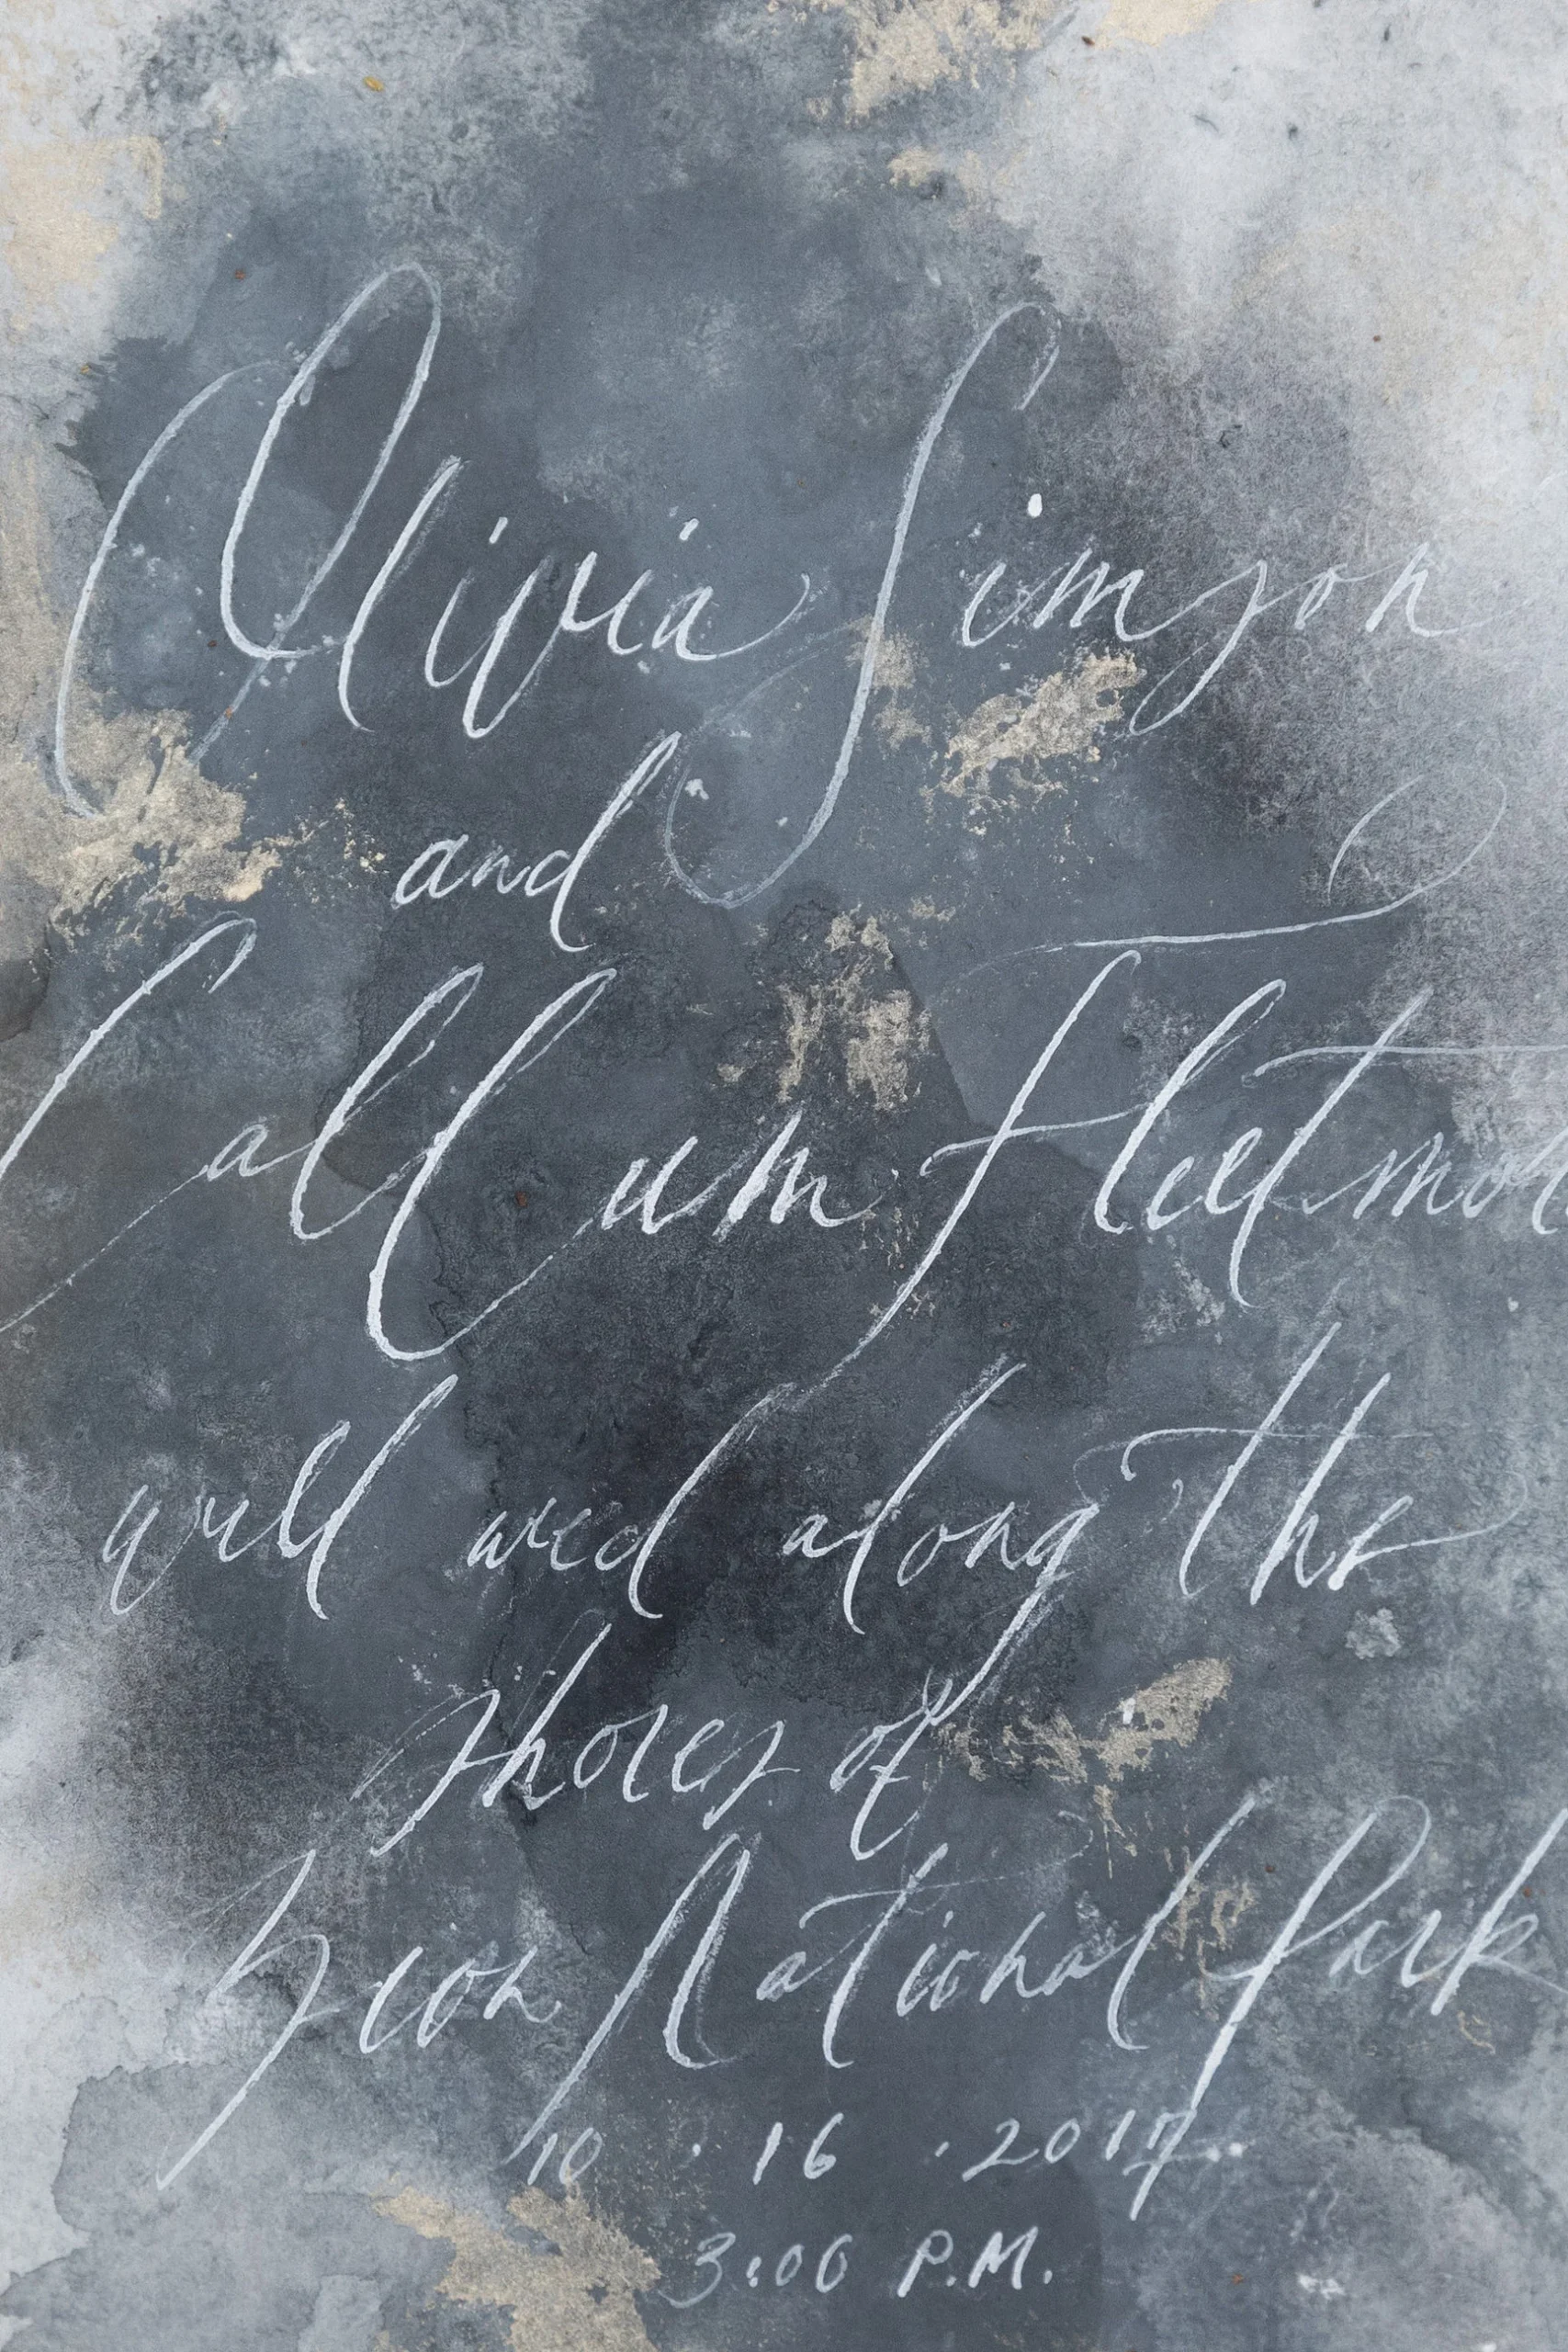 Olivia Simson
and
Callum Fleetmor
will wed along the
shores of
Zion National Park
10 · 16 · 2017
3:00 P.M.